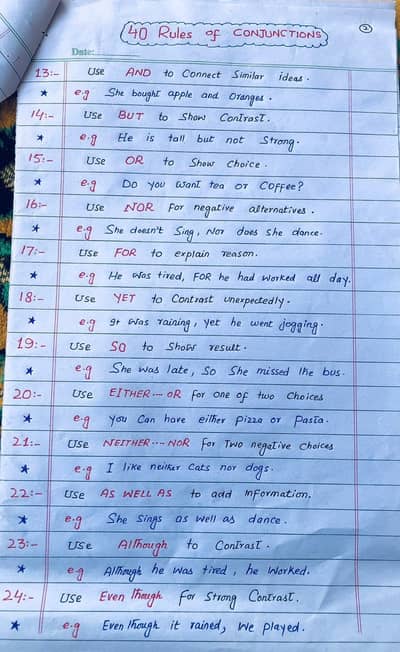 40 Rules of CONJUNCTIONS
2
Date:
13:- Use AND to Connect Similar ideas.
★ e.g She bought apple and Oranges.
14:- Use BUT to Show Contrast.
★ e.g He is tall but not Strong.
15:- Use OR to Show Choice.
★ e.g Do you want tea or Coffee?
16:- Use NOR For negative alternatives.
★ e.g She doesn't Sing, Nor does She dance.
17:- Use FOR to explain reason.
★ e.g He was tired, FOR he had worked all day.
18:- Use YET to Contrast unexpectedly.
★ e.g It was raining, yet he went jogging.
19:- Use SO to Show result.
★ e.g She was late, So She missed the bus.
20:- Use EITHER --- OR For one of two Choices
★ e.g You Can have either Pizza or Pasta.
21:- Use NEITHER --- NOR For Two negative Choices
★ e.g I like neither Cats nor dogs.
22:- Use AS WELL AS to add Information.
★ e.g She Sings as well as dance.
23:- Use Although to Contrast.
★ e.g Although he was tired, he worked.
24:- Use Even though For Strong Contrast.
★ e.g Even though it rained, we played.